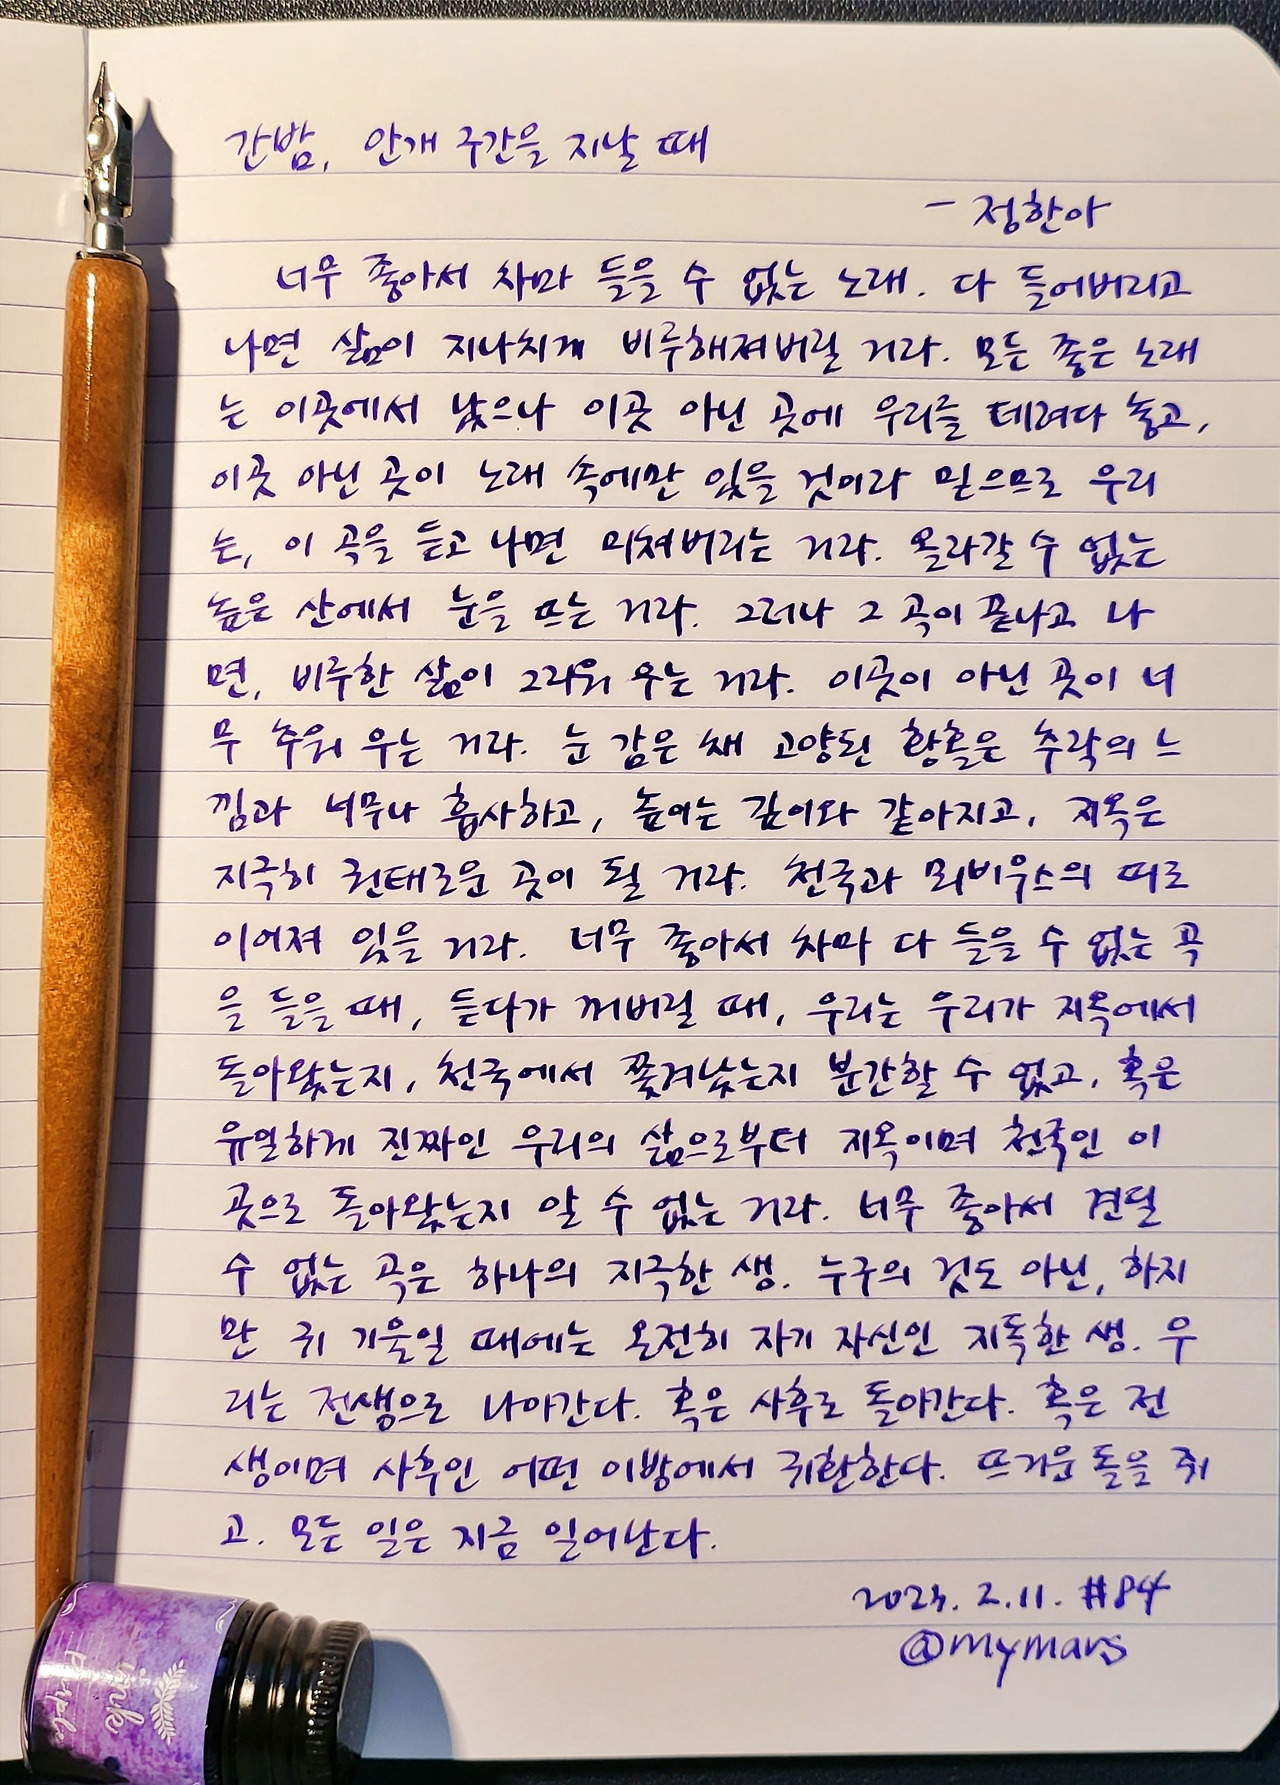 간밤, 안개 구간을 지날 때
- 정한아
너무 좋아서 차마 들을 수 없는 노래. 다 들어버리고
나면 삶이 지나치게 비루해져버릴 거라. 모든 좋은 노래
는 이곳에서 났으나 이곳 아닌 곳에 우리를 데려다 놓고,
이곳 아닌 곳이 노래 속에만 있을 것이라 믿으므로 우리
는, 이 곡을 듣고 나면 미쳐버리는 거라. 올라갈 수 없는
높은 산에서 눈을 뜨는 거라. 그러나 그 곡이 끝나고 나
면, 비루한 삶이 그리워 우는 거라. 이곳이 아닌 곳이 너
무 추워 우는 거라. 눈 감은 채 고양된 황홀은 추락의 느
낌과 너무나 흡사하고, 높이는 깊이와 같아지고, 지옥은
지극히 권태로운 곳이 될 거라. 천국과 뫼비우스의 띠로
이어져 있을 거라. 너무 좋아서 차마 다 들을 수 없는 곡
을 들을 때, 듣다가 꺼버릴 때, 우리는 우리가 지옥에서
돌아왔는지, 천국에서 쫓겨났는지 분간할 수 없고, 혹은
유일하게 진짜인 우리의 삶으로부터 지옥이며 천국인 이
곳으로 돌아왔는지 알 수 없는 거라. 너무 좋아서 견딜
수 없는 곡은 하나의 지극한 생. 누구의 것도 아닌, 하지
만 귀 기울일 때에는 온전히 자기 자신인 지독한 생. 우
리는 전생으로 나아간다. 혹은 사후로 돌아간다. 혹은 전
생이며 사후인 어떤 이방에서 귀환한다. 뜨거운 돌을 쥐
고. 모든 일은 지금 일어난다.
2023. 2. 11. #84
@mymars
ink
Purple